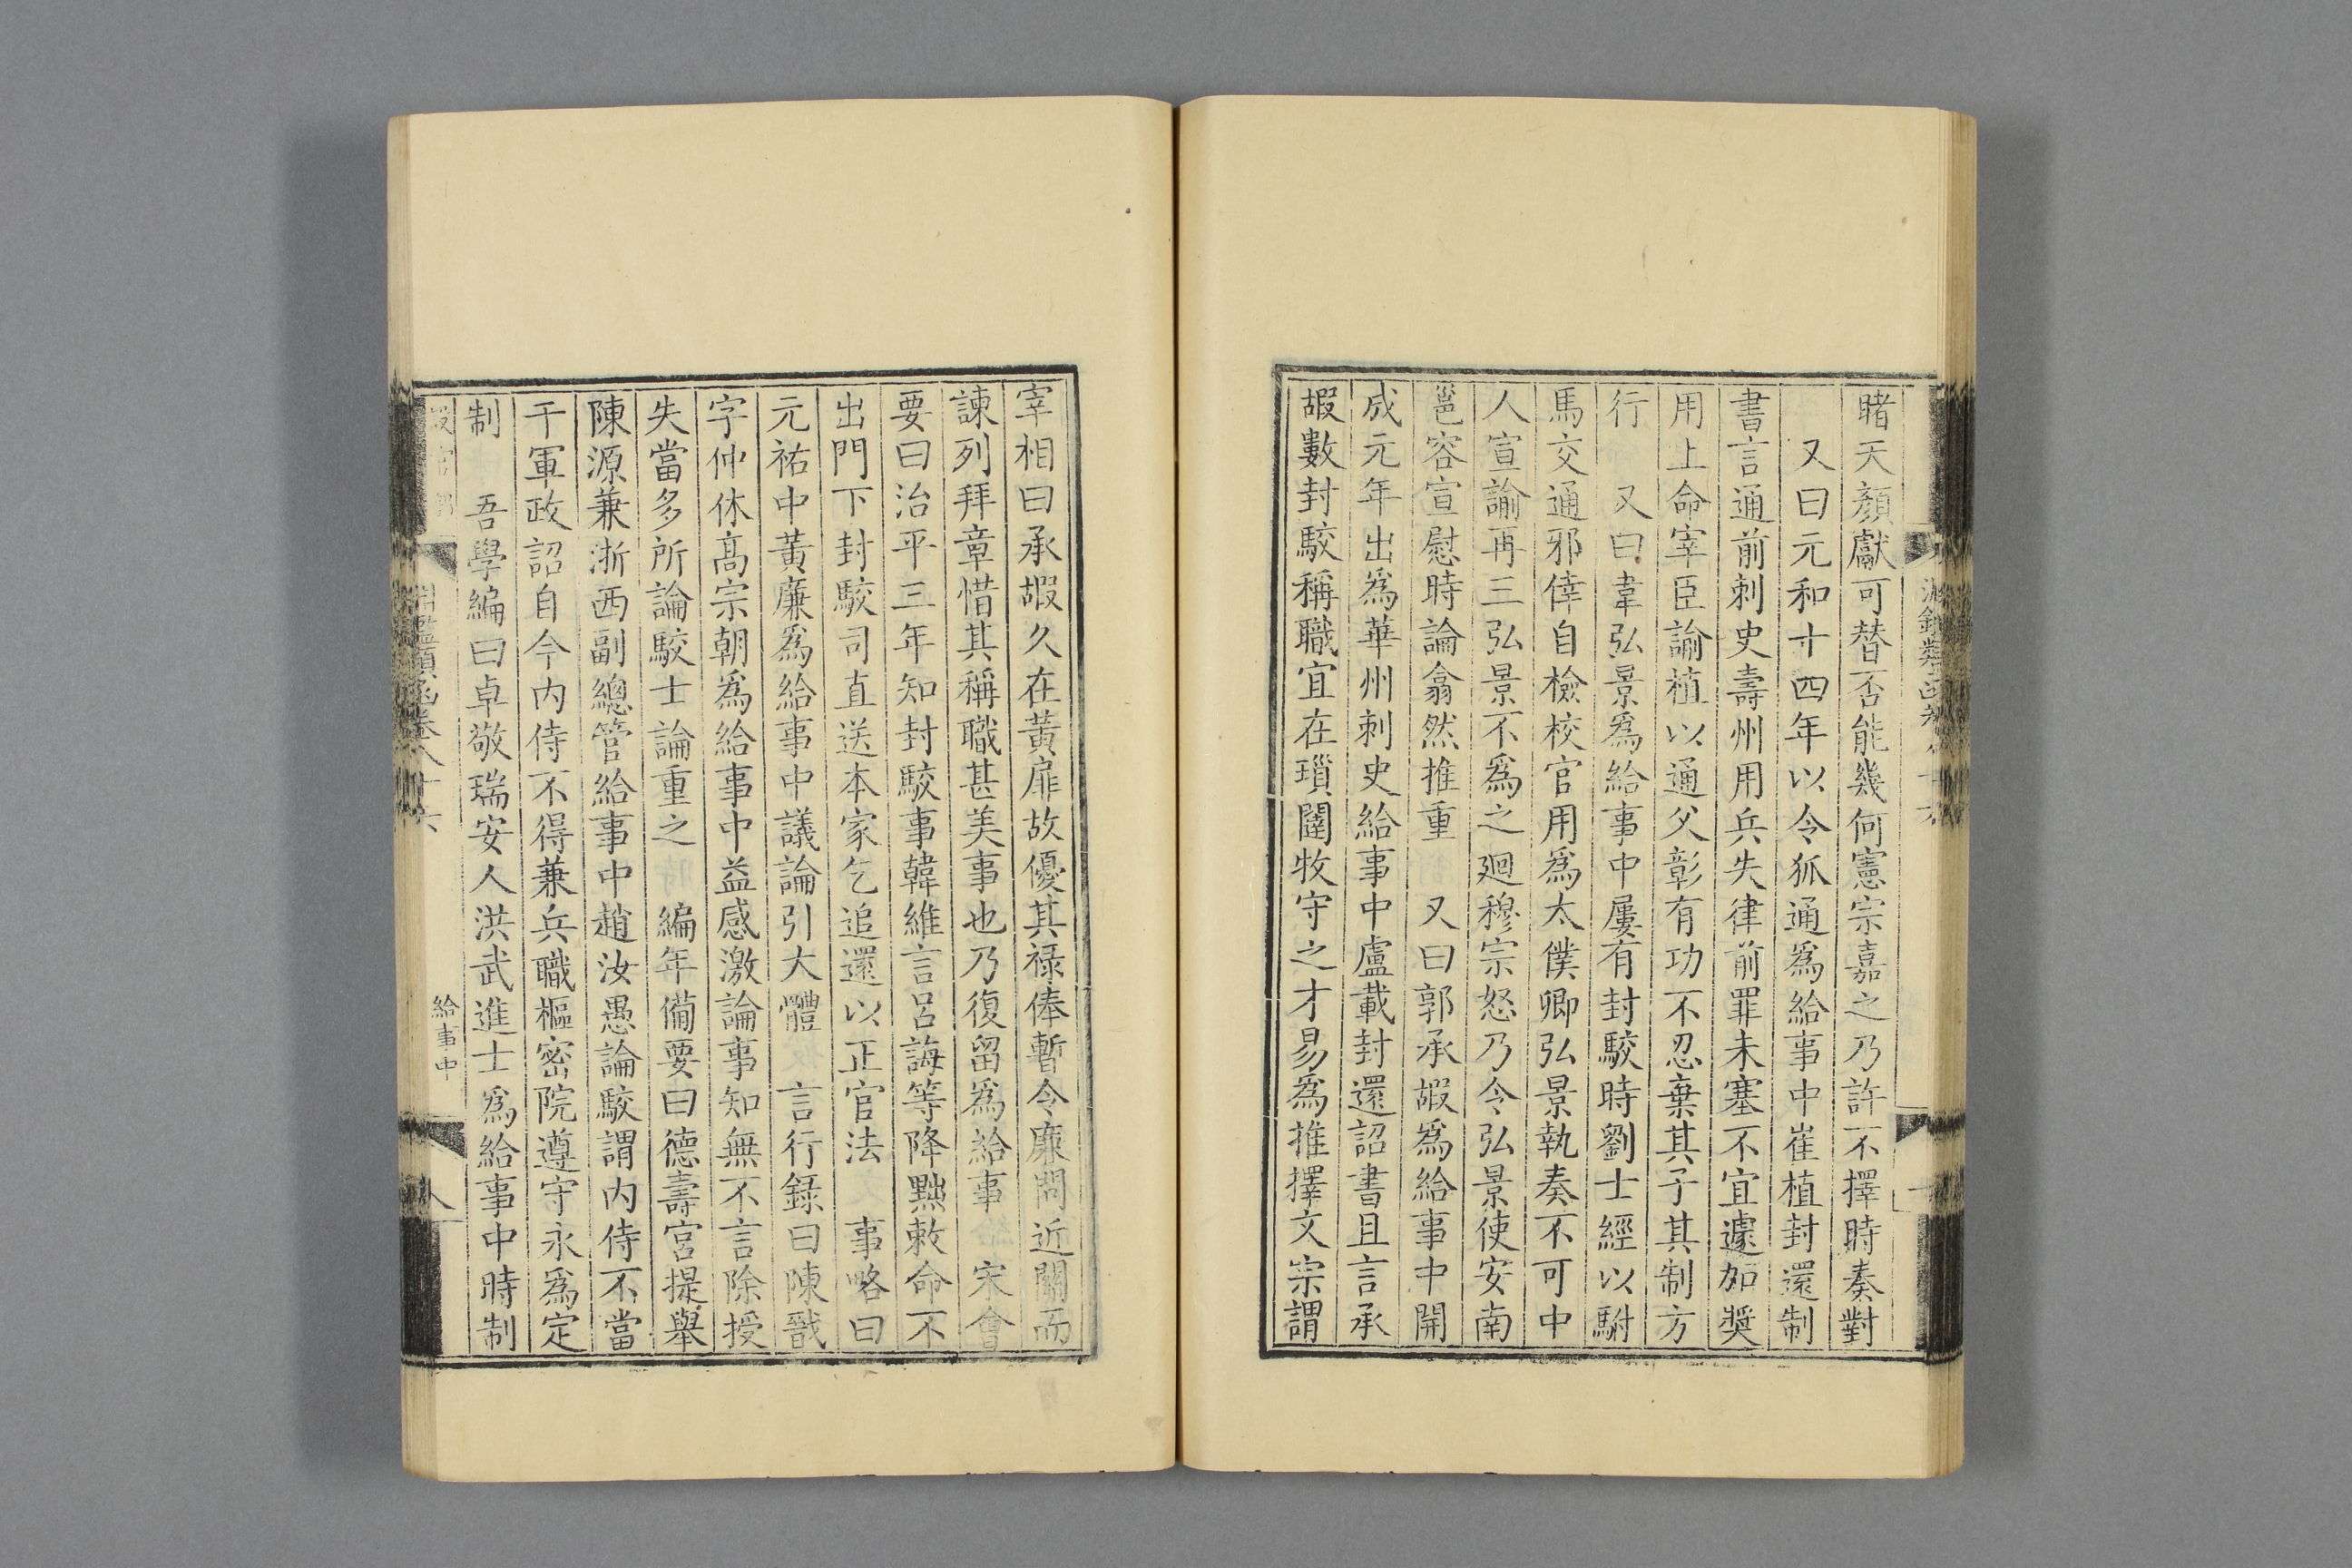 睹天顏獻可替否能幾何憲宗嘉之乃許不擇時奏對
又曰元和十四年以令狐通爲給事中崔植封還制
書言通前刺史壽州用兵失律前罪未塞不宜遽加奬
用上命宰臣諭植以通父彰有功不忍棄其子其制方
行 又曰韋弘景爲給事中屢有封駮時劉士經以駙
馬交通邪倖自檢校官用爲太僕卿弘景執奏不可中
人宣諭再三弘景不爲之廻穆宗怒乃令弘景使安南
邕容宣慰時論翕然推重 又曰郭承嘏爲給事中開
成元年出爲華州刺史給事中盧載封還詔書且言承
嘏數封駮稱職宜在瑣闥牧守之才易爲推擇文宗謂
宰相曰承嘏久在黃扉故優其祿俸暫令廉問近關而
諫列拜章惜其稱職甚美事也乃復留爲給事 宋會
要曰治平三年知封駮事韓維言呂誨等降黜敕命不
出門下封駮司直送本家乞追還以正官法 事略曰
元祐中黃廉爲給事中議論引大體 言行錄曰陳戩
字仲休高宗朝爲給事中益感激論事知無不言除授
失當多所論駮士論重之 編年備要曰德壽宮提舉
陳源兼浙西副總管給事中趙汝愚論駮謂内侍不當
干軍政詔自今内侍不得兼兵職樞密院遵守永爲定
制 吾學編曰卓敬瑞安人洪武進士爲給事中時制
設官部 淵鑑類函卷八十六 給事中 八